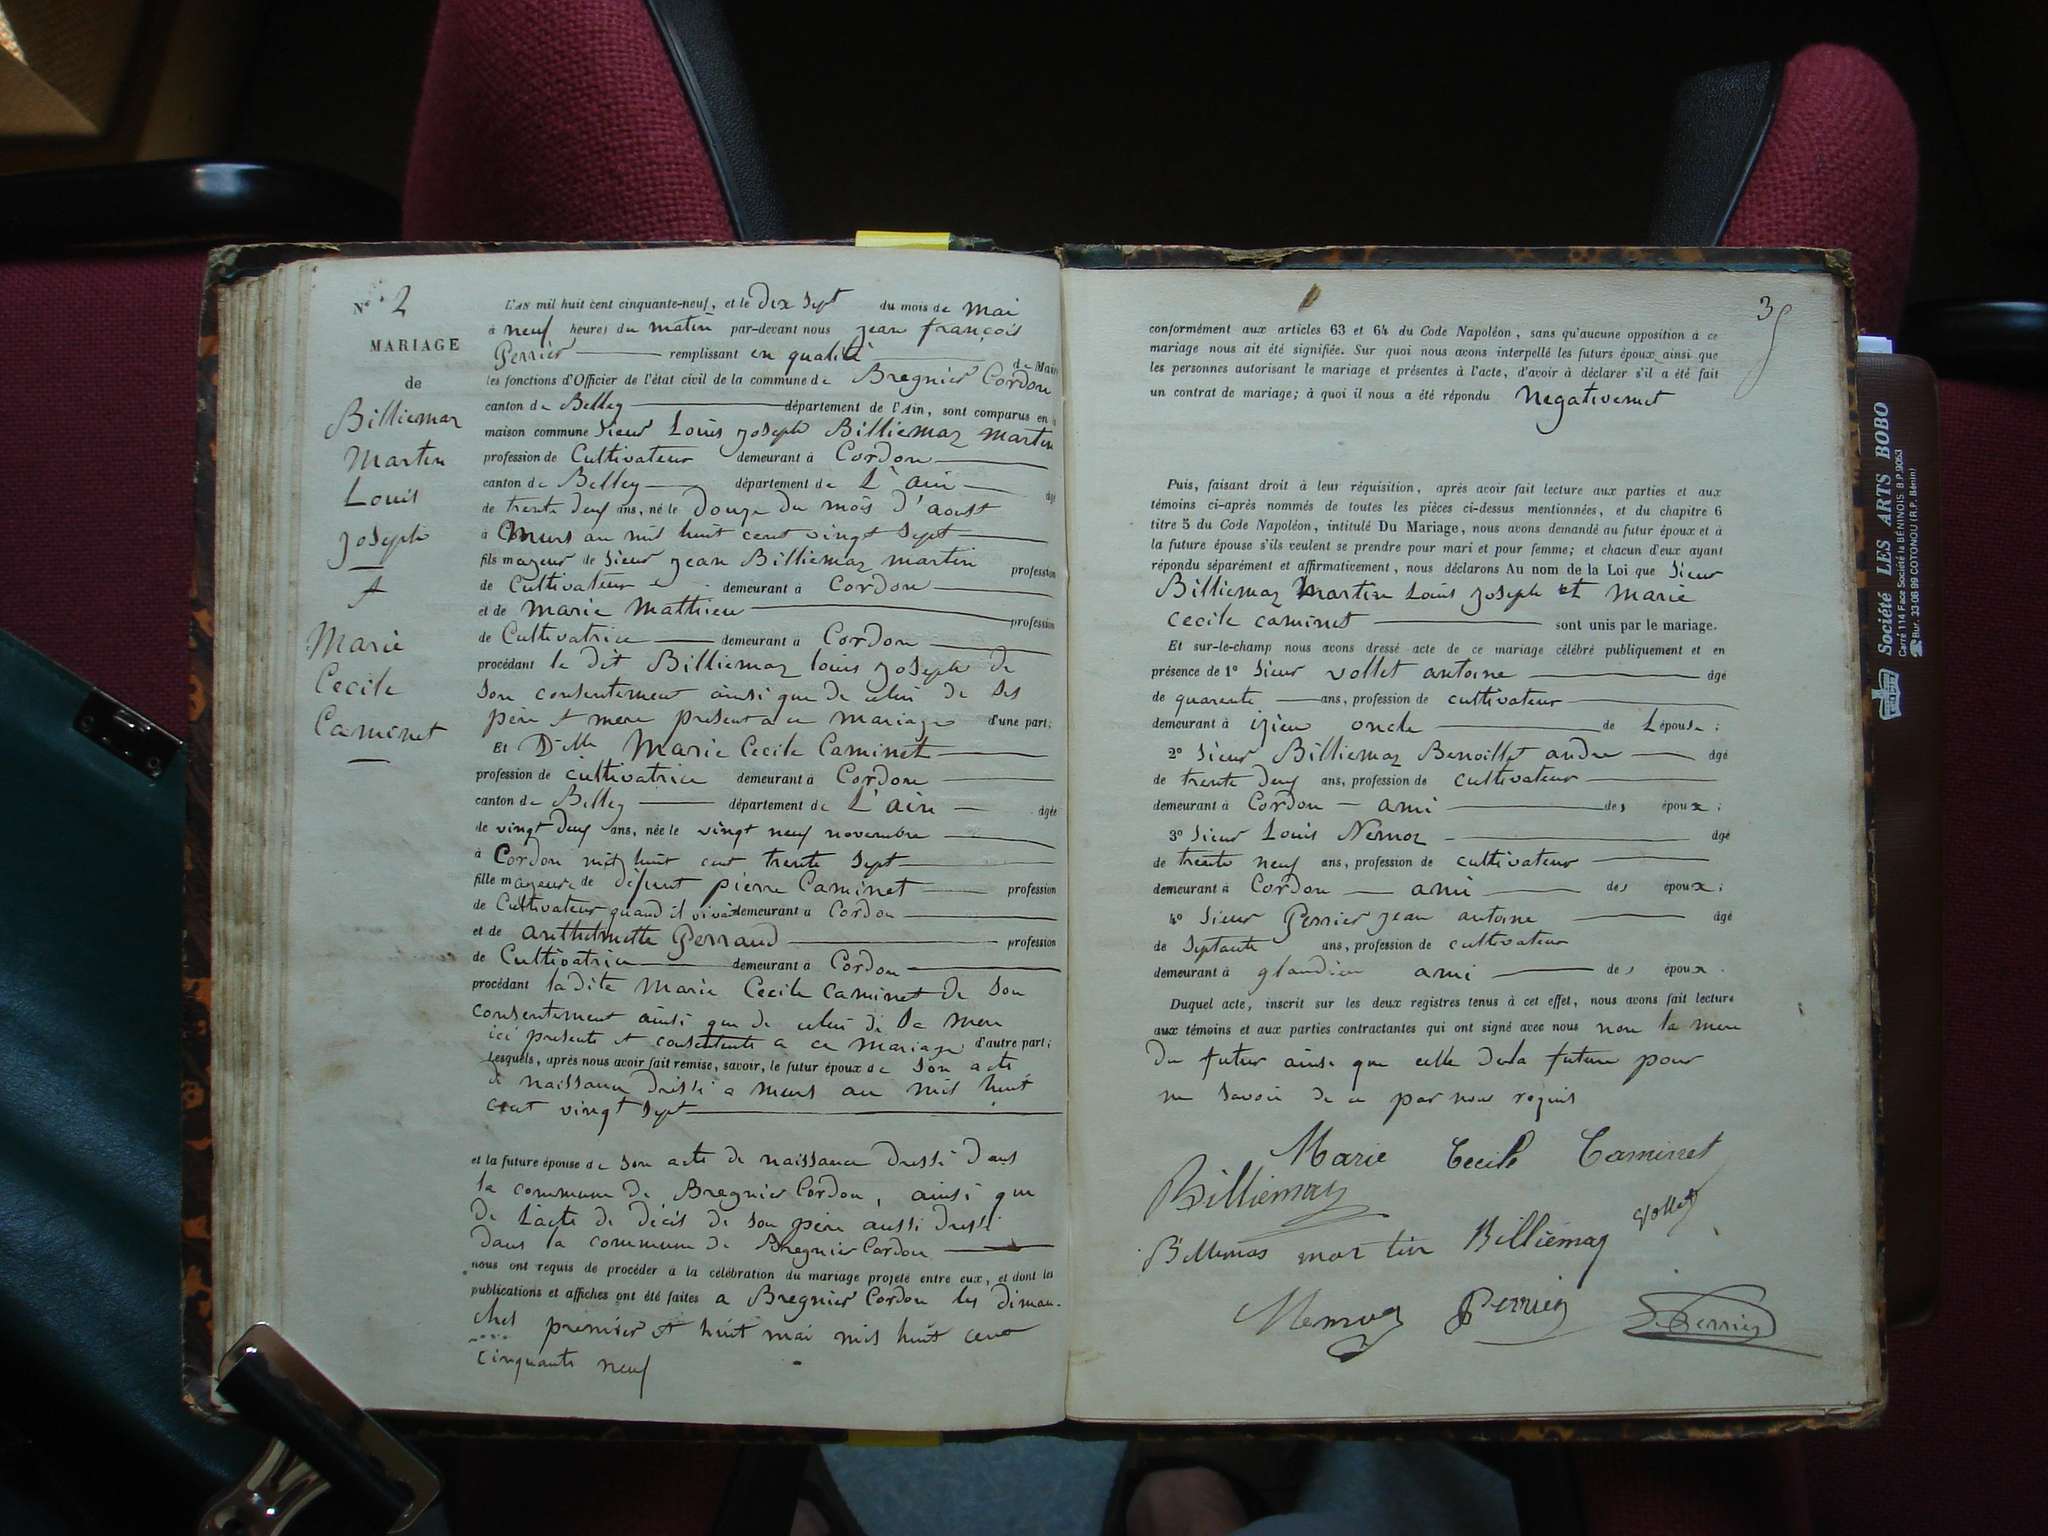 N° 2
MARIAGE
de
Billiemaz
Martin
Louis
Joseph
et
Marie
Cecile
Caminet
L'AN mil huit cent cinquante-neuf, et le dix sept du mois de mai
à neuf heures du matin par-devant nous jean françois
Perrier remplissant en qualité de Maire
les fonctions d'Officier de l'état civil de la commune de Bregnier Cordon
canton de Belley département de l'Ain, sont comparus en la
maison commune Sieur Louis joseph Billiemaz martin
profession de Cultivateur demeurant à Cordon
canton de Belley département de L'ain âgé
de trente deux ans, né le douze du mois d'aoust
à Murs au mil huit cent vingt sept
fils majeur de Sieur jean Billiemaz martin profession
de Cultivateur demeurant à Cordon
et de marie Mathieu profession
de Cultivatrice demeurant à Cordon
procédant le dit Billiemaz louis joseph de
son consentement ainsi que de celui de ses
père et mere present a ce mariage d'une part;
Et Dlle Marie Cecile Caminet
profession de cultivatrice demeurant à Cordon
canton de Belley département de L'ain âgée
de vingt deux ans, née le vingt neuf novembre
à Cordon mil huit cent trente sept
fille majeure de défunt pierre Caminet profession
de Cultivateur quand il vivait demeurant à Cordon
et de anthelmette Perraud profession
de Cultivatrice demeurant à Cordon
procédant ladite Marie Cecile Caminet de son
consentement ainsi que de celui de sa mere
ici presente et consentente a ce mariage d'autre part;
Lesquels, après nous avoir fait remise, savoir, le futur époux de son acte
de naissance dressé a murs au mil huit
cent vingt sept
et la future épouse de son acte de naissance dressé dans
la commune de Bregnier Cordon, ainsi que
de l'acte de décès de son père aussi dressé
dans la commune de Bregnier Cordon
nous ont requis de procéder à la célébration du mariage projeté entre eux, et dont les
publications et affiches ont été faites a Bregnier Cordon les diman-
ches premier et huit mai mil huit cent
cinquante neuf
3
conformément aux articles 63 et 64 du Code Napoléon, sans qu'aucune opposition à ce
mariage nous ait été signifiée. Sur quoi nous avons interpellé les futurs époux ainsi que
les personnes autorisant le mariage et présentes à l'acte, d'avoir à déclarer s'il a été fait
un contrat de mariage; à quoi il nous a été répondu negativement
Puis, faisant droit à leur réquisition, après avoir fait lecture aux parties et aux
témoins ci-après nommés de toutes les pièces ci-dessus mentionnées, et du chapitre 6
titre 5 du Code Napoléon, intitulé Du Mariage, nous avons demandé au futur époux et à
la future épouse s'ils veulent se prendre pour mari et pour femme; et chacun d'eux ayant
répondu séparément et affirmativement, nous déclarons Au nom de la Loi que Sieur
Billiemaz Martin Louis joseph et marie
Cecile caminet sont unis par le mariage.
Et sur-le-champ nous avons dressé acte de ce mariage célébré publiquement et en
présence de 1° Sieur vollet antoine âgé
de quarente ans, profession de cultivateur
demeurant à izieu oncle de Lépouse;
2° Sieur Billiemaz Benoillet andre âgé
de trente deux ans, profession de cultivateur
demeurant à Cordon ami des époux;
3° Sieur Louis Nemoz âgé
de trente neuf ans, profession de cultivateur
demeurant à Cordon ami des époux;
4° Sieur Perrier jean antoine âgé
de Septante ans, profession de cultivateur
demeurant à glandieu ami des époux.
Duquel acte, inscrit sur les deux registres tenus à cet effet, nous avons fait lecture
aux témoins et aux parties contractantes qui ont signé avec nous non la mere
du futur ainsi que celle de la future pour
ne savoir de ce par nous requis
Marie Cecile Caminet
Billiemaz
Vollet
Billiemas martin Billiemaz
Nemoz Perrier Perrier
Société LES ARTS BOBO
Carré 114 Face Société la BÉNINOIS B.P. 9053
Bur. 33-06-99 COTONOU (R.P. Bénin)